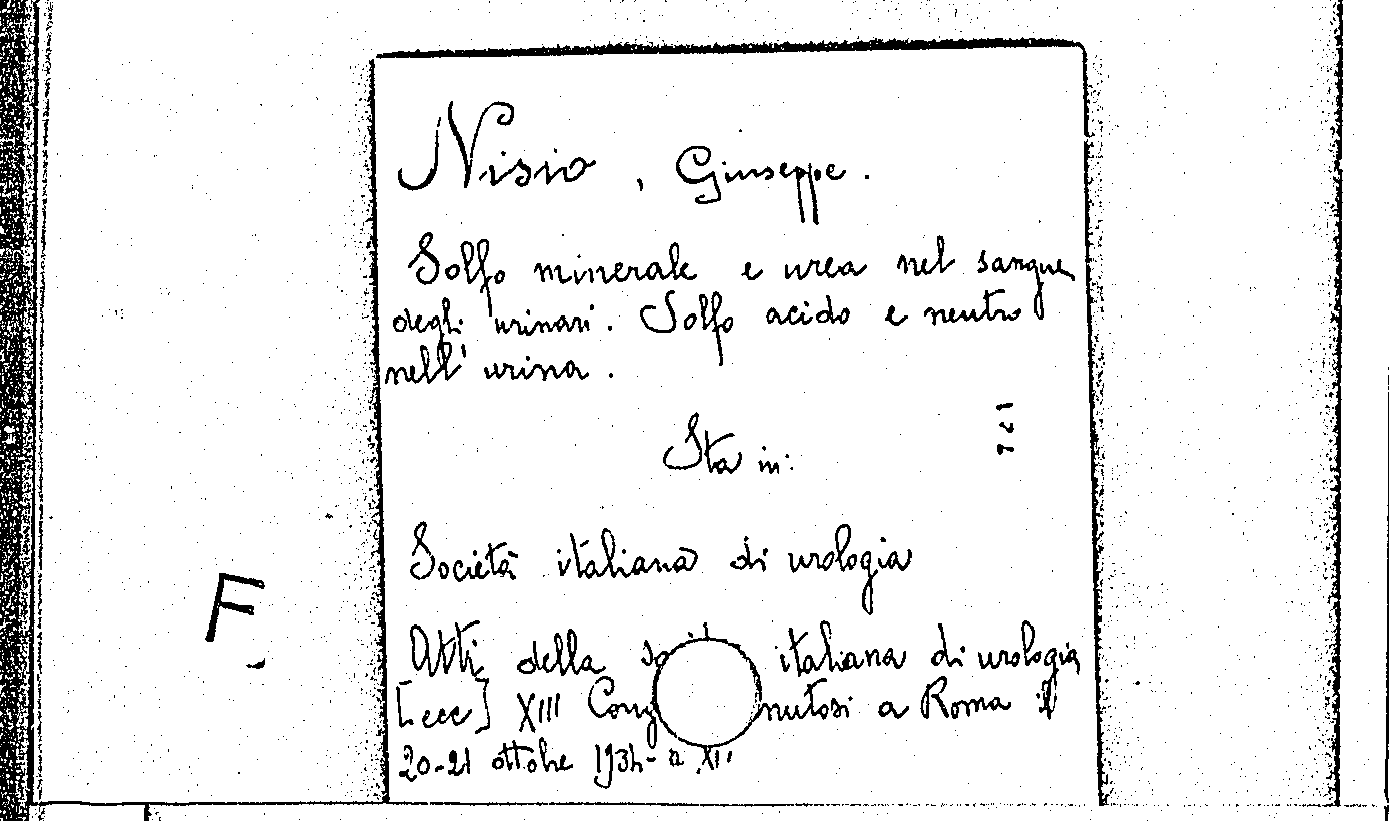 Nisio, Giuseppe.
Solfo minerale e urea nel sangue
degli urinari. Solfo acido e neutro
nell'urina.
Sta in:
Società italiana di urologia
Atti della italiana di urologia
[ecc] XIII Cong nutosi a Roma il
20-21 ottobre 1934-a XII
F